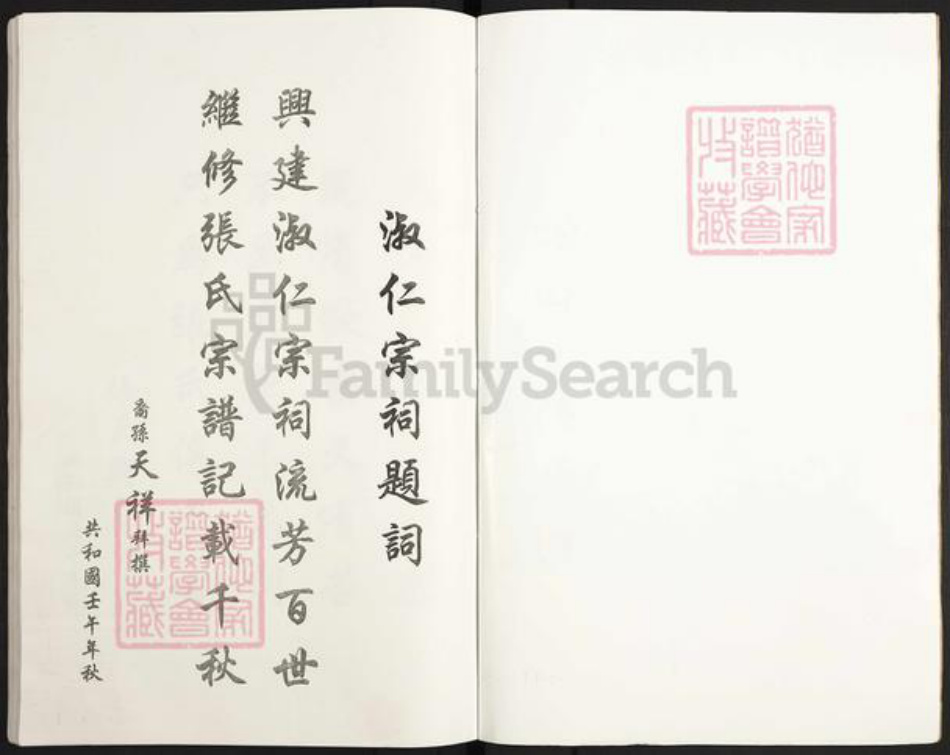 猶他家
譜學會
收藏
淑仁宗祠題詞
興建淑仁宗祠流芳百世
繼修張氏宗譜記載千秋
裔孫天祥拜撰
共和國壬午年秋
猶他家
譜學會
收藏
FamilySearch